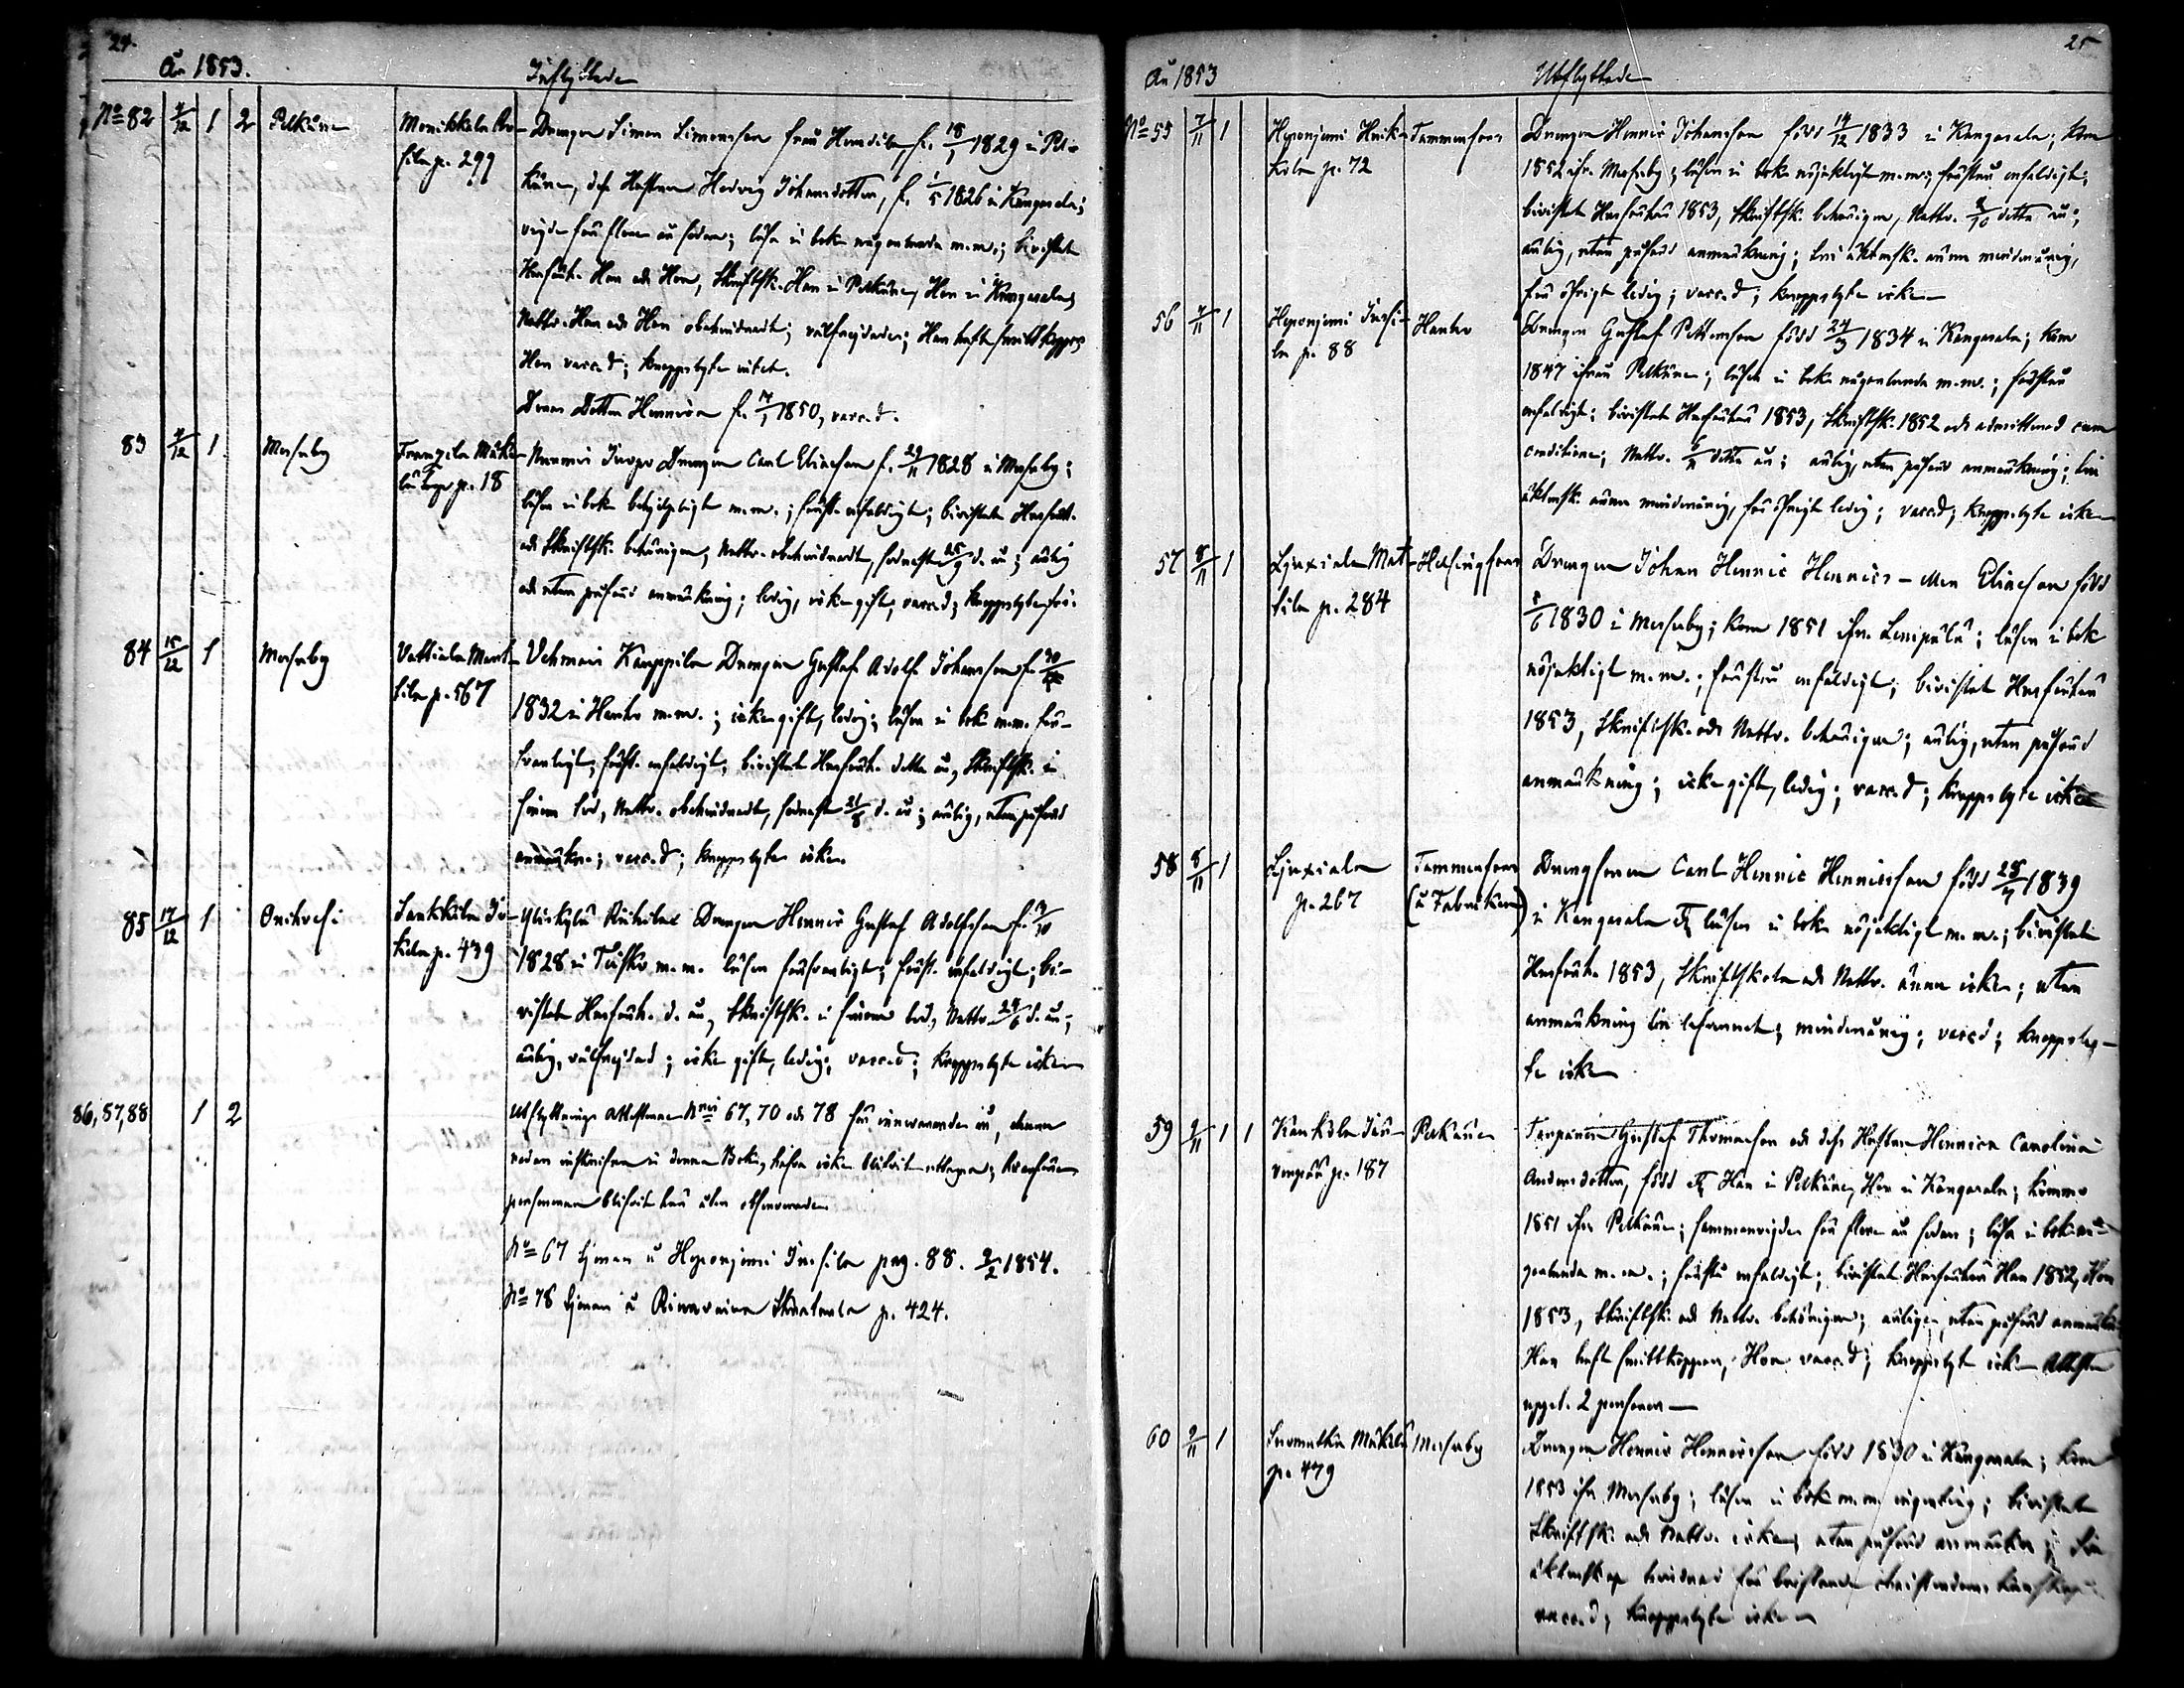 24.
År 1853.
Inflyttade
No 82 4/12 1 2 Pelkäne
Monikkala
fila p. 299
Drengen Simon Simonsson från f. 18/1 1829 i Pel-
käne, dess Hustru Hedvig Johansdotter, f. 1/5 1826 i Kangasala;
vigde för flere år sedan; läsa i bok någorlunda m.m.; bivistat
Husförh. Han och Hon, Skriftsk. Han i Pelkäne, Hon i Kangasala,
Nattv. Han och Hon obehindradt; välfrejdade; Han haft smittkoppor
Hon vacc.d; knappslyte intet.
Deras Dotter Henrica f. 17/1 1850, vacc.d.
83 4/12 1 Messuby
p. 18
Drengen Carl Eliasson f. 29/11 1828 i Messuby;
läser i bok m.m.; först. enfaldigt; bivistat Husförh.
och Skriftsk. behörigen, Nattv. obehindradt, sednast 25/9 d. år; ärlig
och utan påförd anmärkning; ledig, icke gift; vacc.d; knappslyte
84 15/12 1 Messuby
Vattiala
fila p. 567
Vehmais Kauppila Drengen Gustaf Adolf Johansson f. 30/
1832 i Hauho m.m.; icke gift, ledig; läser i bok m.m. för-
svarligt; först. enfaldigt; bivistat Husförh. detta år, Skriftsk. i
sinom tid, Nattv. obehindradt, sednast 21/8 d. år; ärlig, utan påförd
anmärkn.; vacc.d; knappslyte icke.
85 17/12 1 Orihvesi
p. 439
Drengen Henric Gustaf Adolfsson f. 3/10
1828 i Teisko m.m. läser försvarligt; först. enfaldigt; bi-
vistat Husförh. d. år, Skriftsk. i sinom tid, Nattv. 24/6 d. år;
ärlig, välfrejdad; icke gift, ledig; vacc.d; knappslyte icke
86, 87, 88 1 2
Utflyttnings attesterne Nris 67, 70 och 78 för innevarande år, denna
redan inskrifne i denna Bok, hafva icke blifvit uttagne; hvarföre
personerna blifvit här åter observerade.
No 67 tjenar å Heponjemi Jussila pag. 88. 2/2 1854.
No 78 tjenar å p. 424.
25
År 1853
Utflyttade
No 55 7/11 1
Heponjemi Heik-
kola p. 72
Tammerfors
Drengen Henric Johansson född 14/12 1833 i Kangasala; kom
1852 ifr. Messuby; läser i bok nöjaktigt m.m.; förstår enfaldigt;
bivistat Husförhör 1853, Skriftsk. behörigen, Nattv. 2/10 detta år;
ärlig, utan påförd anmärkning; till äktensk. ännu minderårig,
för öfrigt ledig; vacc.d; knappslyte icke
56 7/11 1
Heponjemi Jussi-
la p. 88
Hauho
Drengen Gustaf Pettersson född 24/3 1834 i Kangasala; kom
1847 ifrån Pelkäne; läser i bok någorlunda m.m.; förstår
enfaldigt; bivistat Husförhör 1853, Skriftsk. 1852 och admitterad cum
conditione; Nattv. detta år; ärlig, utan påförd anmärkning; till
äktensk. ännu minderårig, för öfrigt ledig; vacc.d; knappslyte icke
57 8/11 1
Liuxiala Mat-
tila p. 284
Helsingfors
Drengen Johan Henric Henrics- Eliasson född
5/6 1830 i Messuby; kom 1851 ifr. Lempälä; läser i bok
nöjaktigt m.m.; förstår enfaldigt; bivistat Husförhör
1853, Skriftsk. och Nattv. behörigen; ärlig, utan påförd
anmärkning; icke gift, ledig; vacc.d; knappslyte icke
58 8/11 1
Liuxiala
p. 267
Tammerfors
(å Fabriken)
Drengsonen Carl Henric Henricsson född 28/7 1839
i Kangasala läser i bok nöjaktigt m.m.; bivistat
Husförh. 1853, Skriftskola och Nattv. ännu icke; utan
anmärkning till lefvernet; minderårig; vacc.d; knappsly-
te icke
59 9/11 1 1
p. 187
Pelkäne
Torparen Gustaf Thomasson och dess Hustru Henrica Carolina
Andersdotter, född Han i Pelkäne, Hon i Kangasala; komne
1851 ifr. Pelkäne; sammanvigde för flere år sedan; läsa i bok nå-
gorlunda m.m.; förstå enfaldigt; bivistat Husförhör Han 1852, Hon
1853, Skriftsk. och Nattv. behörigen; ärlige, utan påförd anmärkn.
Han haft smittkoppor, Hon vacc.d; knappslyte icke Attesten
uppt. 2 personer
60 9/11 1
Suomatka Mäkelä
p. 479
Messuby
Drengen Henric Henricsson född 1830 i Kangasala; kom
1853 ifr. Messuby; läser i bok m.m.; bivistat
Skriftsk. och Nattv. icke; utan påförd anmärkn.; till
äktenskap hindrad för bristande christendoms kunskap;
vacc.d; knappslyte icke